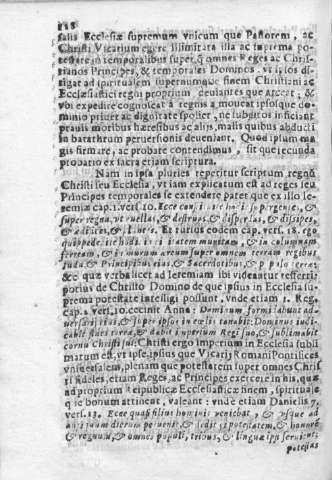 118
salis Ecclesiæ supremum vnicum que Pastorem, ac
Christi Vicarium egere illimitata illa ac suprema po-
testate in temporalibus super omnes Reges ac Chris-
tianos Principes, & temporales Dominos. vt ipsos di-
rigat ad spiritualem supernumque finem Christiani
Ecclesiastici regni proprium, deuiantes que arceat; &
vbi expedire cognoscat à regnis amoueat ipsosque do-
minio priuet ac dignitate spoliet, ne subditos inficiant
prauis moribus hæresibus ac alijs malis quibus abducti
in barathrum peruersionis deueniant. Quod ipsum ma
gis firmare, ac probare contendimus, sit que secunda
probatio ex sacra etiam scriptura.
Nam in ipsa pluries repetitur scriptum regnū
Christi seu Ecclesia, vt iam explicatum est ad reges seu
Principes temporales se extendere patet que ex illo Ie-
remiæ cap. 1. vers. 10. Ecce constitui te hodie super gentes, &
super regna, vt euellas, & destruas & disperdas, & dissipes,
& ædifices, & plantes. Et rursus eodem cap. vers. 18. ego
quippe dedi te hodie in ciuitatem munitam, & in columnam
ferream, & in murum æreum super omnem terram regibus
Iuda & Principibus eius & Sacerdotibus, & populo terræ;
& quæ verba licet ad Ieremiam ibi videantur referri
potius de Christo Domino de que ipsius in Ecclesia su-
prema potestate intelligi possunt, vnde etiam 1. Reg.
cap. 2. vers. 10. cecinit Anna: Dominum formidabunt ad-
uersarij eius, & super ipsos in cælis tonabit: Dominus iudi-
cabit fines terræ, & dabit imperium Regi suo, & sublimabit
cornu Christi sui: Christi ergo imperium in Ecclesia subli
matum est, vt ipse, ipsius que Vicarij Romani Pontifices
vniuersalem, plenam que potestatem super omnes Chris
ti fideles, etiam Reges, ac Principes exercere in his, quæ
ad proprium Reipublicæ Ecclesiasticæ finem, spirituale
que bonum attinent, valeant: vnde etiam Danielis 7.
vers. 13. Ecce quasi filius hominis veniebat, & vsque ad
antiquum dierum peruenit & dedit ei potestatem, & honorē
& regnum, & omnes populi, tribus, & linguæ ipsi seruient;
potestas